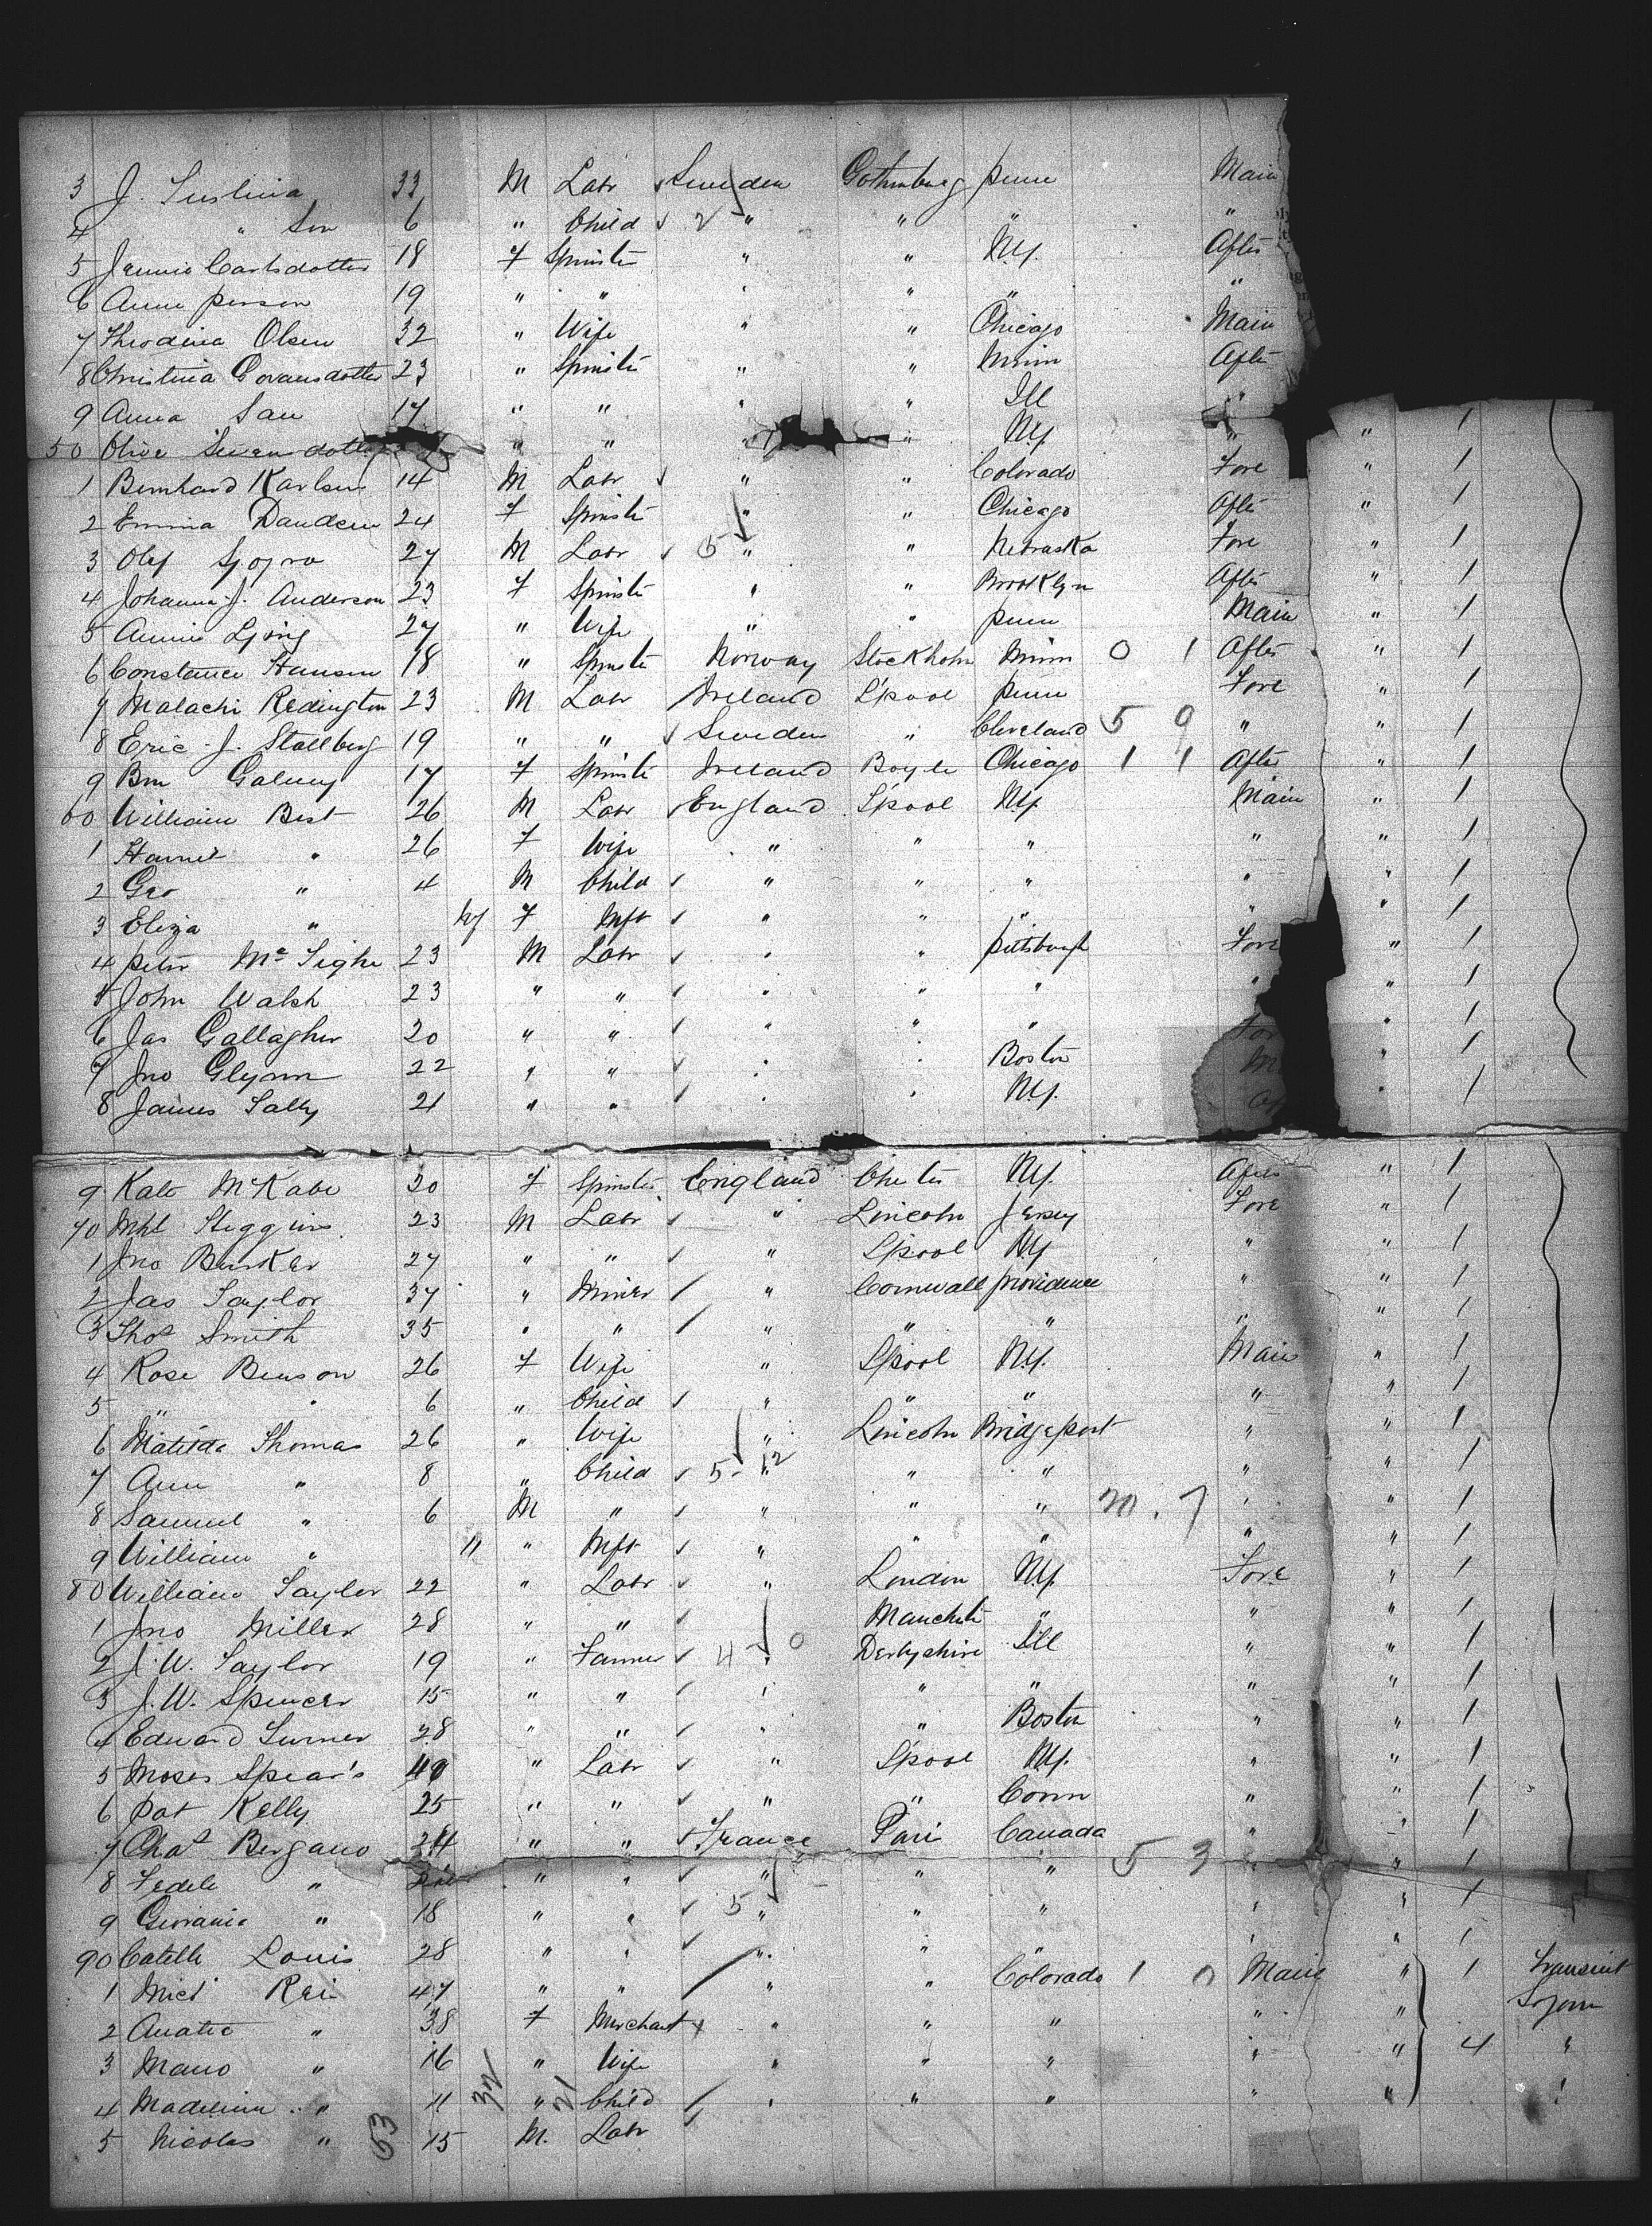 3 J. Justina 33 M Labr Sweden Gothenburg penn Main
4 " Son 6 " Child 2 " " " "
5 Jennie Carlsdotter 18 F Spinster " " N.Y. After
6 Anna person 19 " " " " " "
7 Theodina Olsen 32 " Wife " " Chicago Main
8 Christina Govansdotter 23 " Spinster " " Minn After
9 Anna San 17 " " " " Ill "
50 Olive Swensdotter " " " " N.Y. " " 1
1 Bernhard Karlsen 14 M Labr " " Colorado Fore " 1
2 Emma Dandern 24 F Spinster " " Chicago After " 1
3 Olof 27 M Labr 5 " " Nebraska Fore " 1
4 Johanna J. Anderson 23 F Spinster " " Brooklyn After " 1
5 Annie Ljong 27 " Wife " " penn Main " 1
6 Constance Hansen 18 " Spinster Norway Stockholm Minn 0 1 After " 1
7 Malachi Redington 23 M Labr Ireland L'pool penn Fore " 1
8 Eric J. Stallberg 19 " " Sweden " Cleveland 5 9 " " 1
9 Bm Galway 17 F Spinster Ireland Boyle Chicago 1 1 After " 1
60 William Best 26 M Labr England L'pool N.Y. Main " 1
1 Harriet " 26 F Wife " " " " " 1
2 Geo " 4 M Child " " " " " 1
3 Eliza " F Inft " " " " " 1
4 peter Mc Tighe 23 M Labr " " pittsburgh Fore " 1
5 John Walsh 23 " " " " " " " 1
6 Jas Gallagher 20 " " " " " For " 1
7 Jno Glynn 22 " " " " Boston M " 1
8 James Lally 21 " " " " N.Y. " 1
9 Kate McKabe 20 F Spinster England Chester N.Y. After " 1
70 Mhl Higgins 23 M Labr " Lincoln Jersey Fore " 1
1 Jno Bunker 27 " " " L'pool N.Y. " " 1
2 Jas Taylor 37 " Miner " Cornwall providence " " 1
3 Thos Smith 35 " " " " " " " 1
4 Rose Benson 26 F Wife " L'pool N.Y. Main " 1
5 " " 6 " Child " " " " " 1
6 Matilda Thomas 26 " Wife " Lincoln Bridgeport " " 1
7 Ann " 8 " Child 5 - 12 " " " " " 1
8 Samuel " 6 M " " " " 20 . 7 " " 1
9 William " 11 " Inft " " " " " 1
80 William Taylor 22 " Labr " London N.Y. Fore " 1
1 Jno Miller 28 " " Manchester " " " 1
2 J. W. Taylor 19 " Farmer 4 0 " Derbyshire Ill " " 1
3 J. W. Spencer 15 " " " " " " " 1
4 Edward Turner 28 " " " " Boston " " 1
5 Moses Spear's 40 " Labr " L'pool N.Y. " " 1
6 pat Kelly 25 " " " " Conn " " 1
7 Chas Bergano 24 " " France Pari Canada " " 1
8 Fedele " " " " " " 5 3 " " 1
9 Giovanie " 18 " " 5 " " " " " 1
90 Catelli Louis 28 " " " " " " " 1
1 Mict Rei 47 " " " " Colorado 1 0 Main " 1 Transient
2 Anatie " 38 F Merchant " " " " " Sojorn
3 Mano " 16 " Wife " " " " " 4 "
4 Madelinn " 11 " Child " " " " " "
5 Nicolas " 15 M. Labr
63 32 21